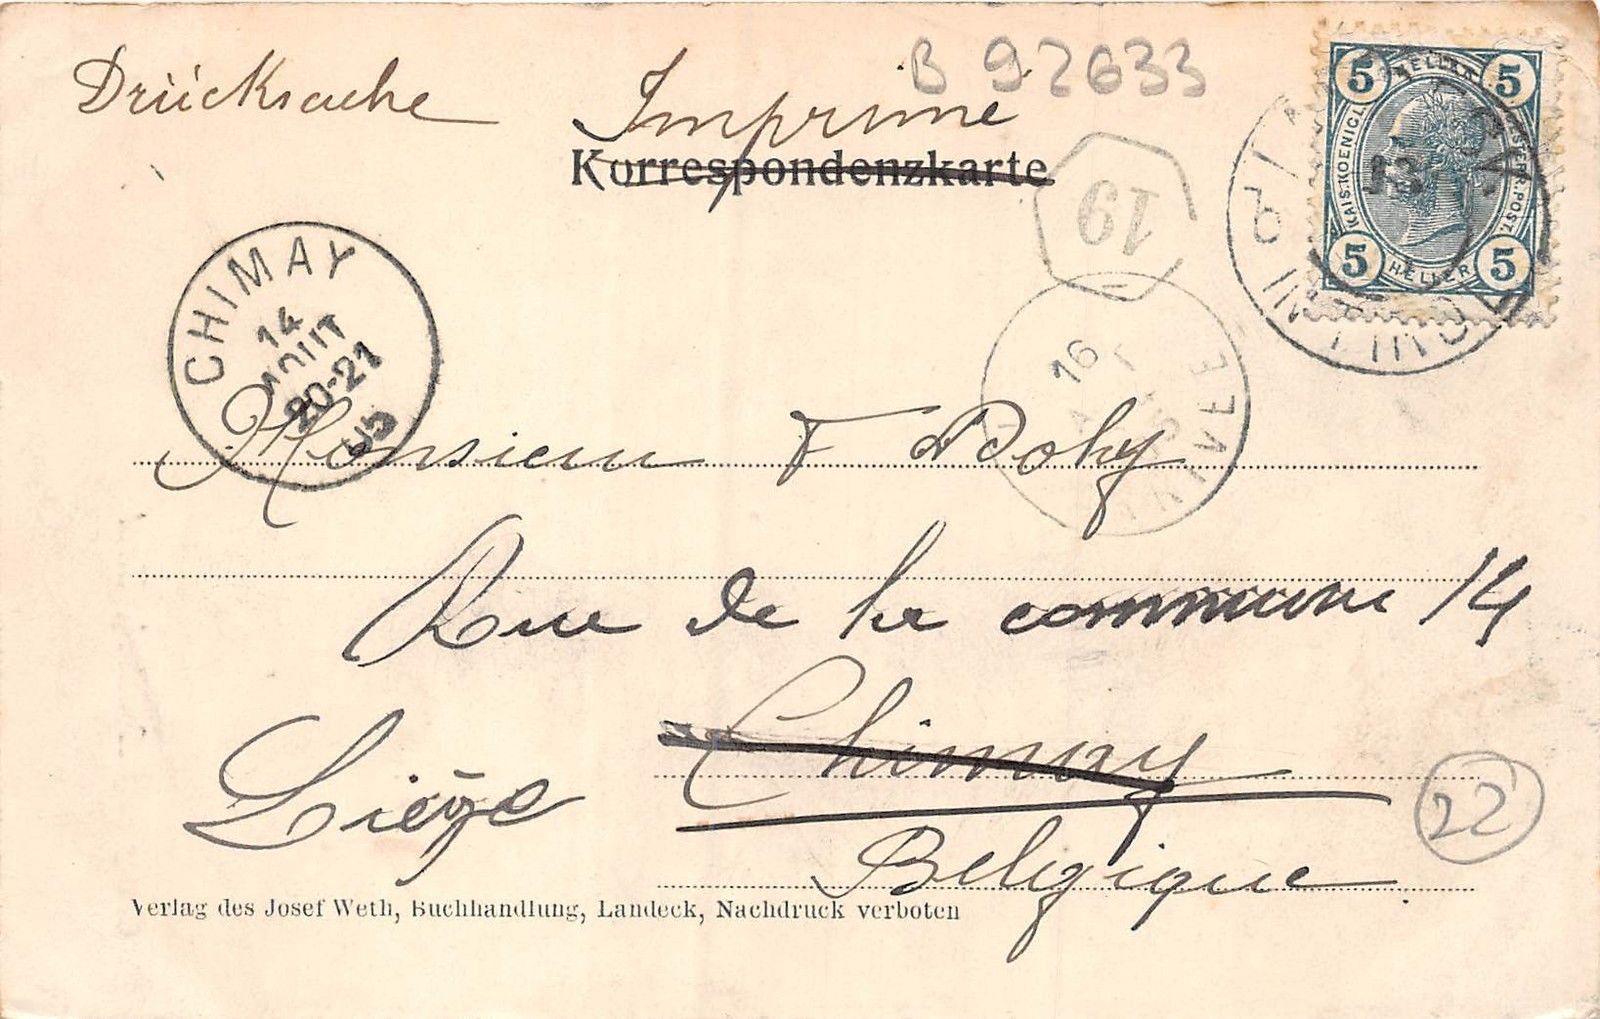 Drücksache Imprime B 92633
Korrespondenzkarte
19
5 HELLER 5
KAIS. KOENIGL. OESTERR. POST.
5 HELLER 5
CHIMAY
14
AOUT
20-21
05
16
Monsieur F Dohy
Rue de la commune 14
Chimay
Liége
22
Belgique
Verlag des Josef Weth, Buchhandlung, Landeck, Nachdruck verboten